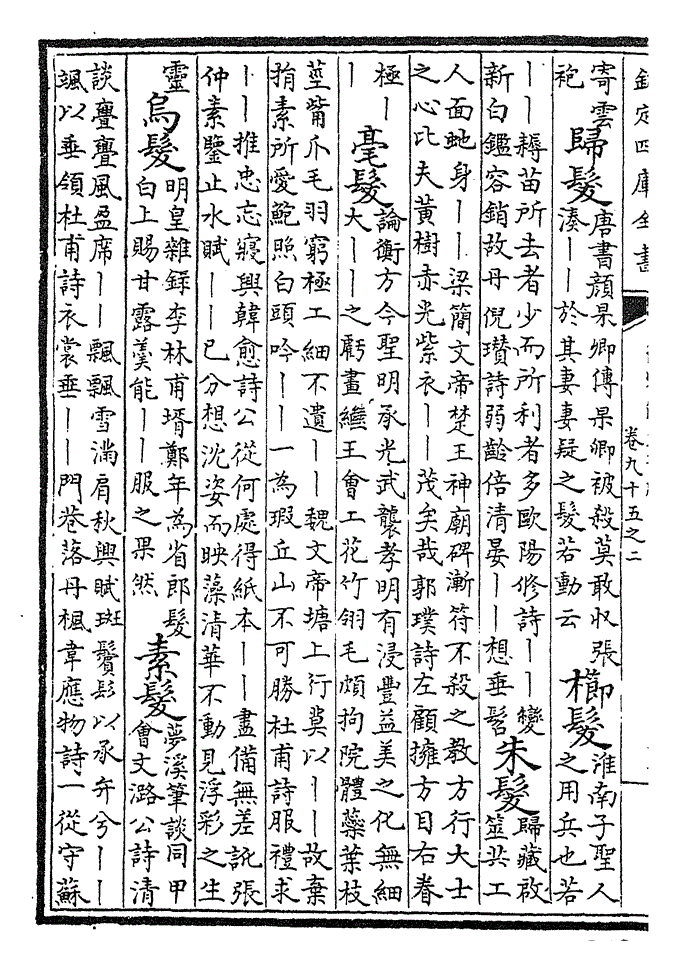 欽定四庫全書
卷九十五之二
寄雲
袍
歸髮
唐書顔杲卿傳杲卿被殺莫敢收張
湊丨丨於其妻妻疑之髮若動云
櫛髮
淮南子聖人
之用兵也若
丨丨耨苗所去者少而所利者多歐陽修詩丨丨變
新白鑑容銷故丹倪瓉詩弱齡倍清晏丨丨想垂髫
朱髮
歸藏啟
筮共工
人面虵身丨丨梁簡文帝楚王神廟碑漸符不殺之教方行大士
之心比夫黄樹赤光紫衣丨丨茂矣哉郭璞詩左顧擁方目右眷
極丨
丨
毫髮
論衡方今聖明承光武襲孝明有浸豐益美之化無細
大丨丨之虧畫繼王會工花竹翎毛頗拘院體蘂葉枝
莖觜爪毛羽窮極工細不遺丨丨魏文帝塘上行莫以丨丨故棄
捐素所愛鮑照白頭吟丨丨一為瑕丘山不可勝杜甫詩服禮求
丨丨推忠忘寢興韓愈詩公從何處得紙本丨丨盡備無差訛張
仲素鑒止水賦丨丨已分想沈姿而映藻清華不動見浮彩之生
靈
烏髮
明皇雜録李林甫壻鄭年為省郎髮
白上賜甘露羹能丨丨服之果然
素髮
夢溪筆談同甲
會文潞公詩清
談亹亹風盈席丨丨飄飄雪滿肩秋興賦斑鬢髟以承弁兮丨丨
颯以垂領杜甫詩衣裳垂丨丨門巷落丹楓韋應物詩一從守蘇